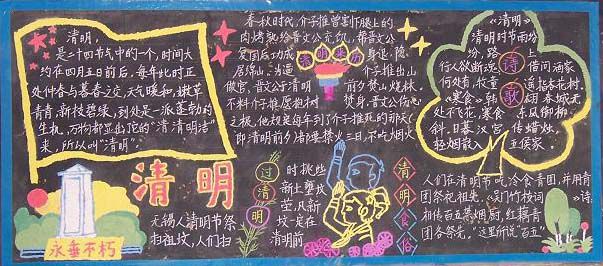 清明,
是二十四节气中的一个,时间大
约在四月五日前后,每年此时正
处仲春与暮春之交,天气暖和,嫩草
青青,新枝碧绿,到处是一派蓬勃的
生机,万物都显出它的“清清明洁”
来,所以叫“清明”.
春秋时代,介子推曾割下腿上的
肉烤熟给晋文公充饥,帮晋文公
身退,隐
居绵山,
介子推出山
做官,晋文公清明
前夕焚山烧林,
不料介子推愿抱树
焚身,晋文公伤心
之极,他规定每年到了介子推死的那天(
即清明前夕)都要禁火三日,不吃烟火
《清明》
清明时节雨纷
纷,路
上
行人欲断魂
借问酒家
何处有,牧童
遥指杏花村.
《寒食》韩
翃 春城无
处不飞花,寒食
东风御柳
斜.日暮汉宫
传蜡烛,
轻烟散入
五侯家
诗
歌
清明
永垂不朽
无锡人清明节祭
扫祖坟,人们扫
过
清
明
时挑些
新土壅坟
莹,凡新
坟一定在
清明前
清
明
食
俗
人们在清明节吃冷食青团,并用青
团祭祀祖先,《吴门竹枝词》诗
相传百五禁烟厨,红藕青
团各祭先,”这里所说“百五”